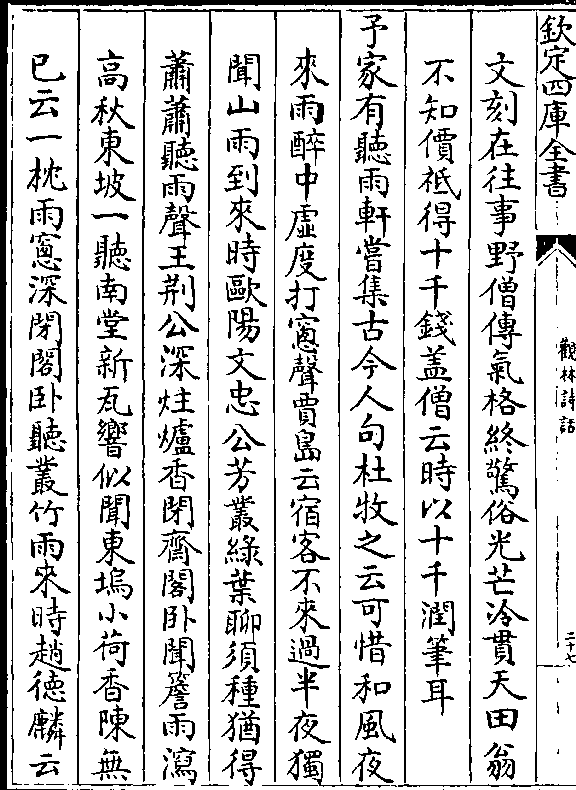 欽定四庫全書
觀林詩話
二十七
文刻在往事野僧傳氣格終驚俗光芒冷貫天田翁
不知價衹得十千錢盖僧云時以十千潤筆耳
予家有聽雨軒嘗集古今人句杜牧之云可惜和風夜
來雨醉中虛度打窻聲賈島云宿客不來過半夜獨
聞山雨到來時歐陽文忠公芳叢綠葉聊須種猶得
蕭蕭聽雨聲王荆公深炷爐香閉齋閣卧聞簷雨瀉
高秋東坡一聽南堂新瓦響似聞東塢小荷香陳無
已云一枕雨窻深閉閣卧聽叢竹雨來時趙德麟云